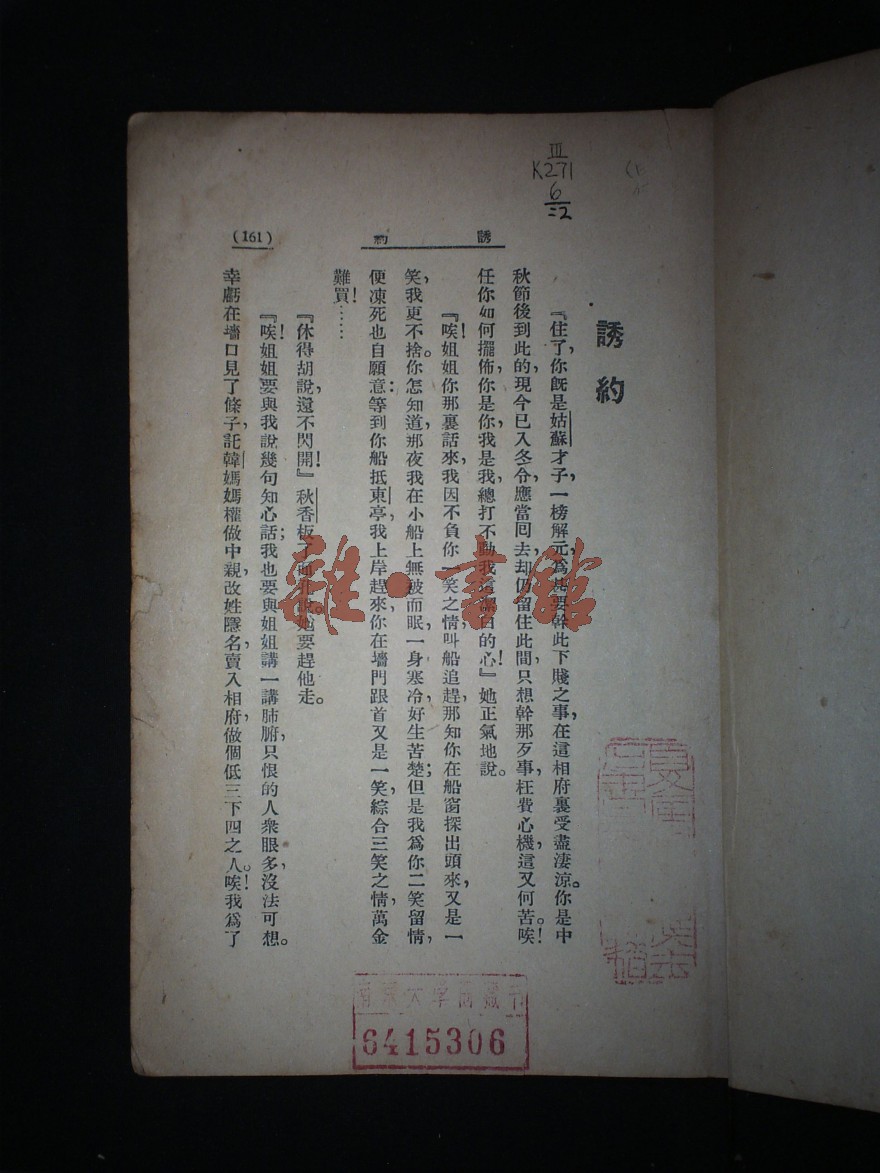 III
K271
6
=2
(161)
誘約
誘約
『住了,你旣是姑蘇才子,一榜解元,爲甚要幹此下賤之事,在這相府裏受盡淒涼。你是中
秋節後到此的,現今已入冬令,應當囘去,却仍留住此間,只想幹那歹事,枉費心機,這又何苦。唉!
任你如何擺佈,你是你,我是我,總打不動我這潔白的心!』她正氣地說。
『唉!姐姐你那裏話來,我因不負你一笑之情,叫船追趕,那知你在船窗探出頭來,又是一
笑,我更不捨。你怎知道,那夜我在小船上無被而眠,一身寒冷,好生苦楚;但是我爲你二笑留情,
便凍死也自願意;等到你船抵東亭,我上岸趕來,你在墻門跟首又是一笑,綜合三笑之情,萬金
難買!……
『休得胡說,還不閃開!』秋香板了面孔說。她要趕他走。
『唉!姐姐要與我說幾句知心話;我也要與姐姐講一講肺腑,只恨的人衆眼多,沒法可想。
幸虧在墻口見了條子,託韓媽媽權做中親,改姓隱名,賣入相府,做個低三下四之人。唉!我爲了
雜·書館
南京大學圖藏書
6415306